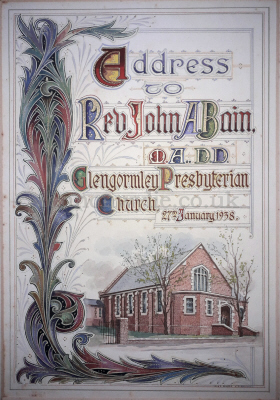 Address
to
Rev. John A. Bain,
M.A., D.D.
Glengormley Presbyterian
Church.
27th January 1938.